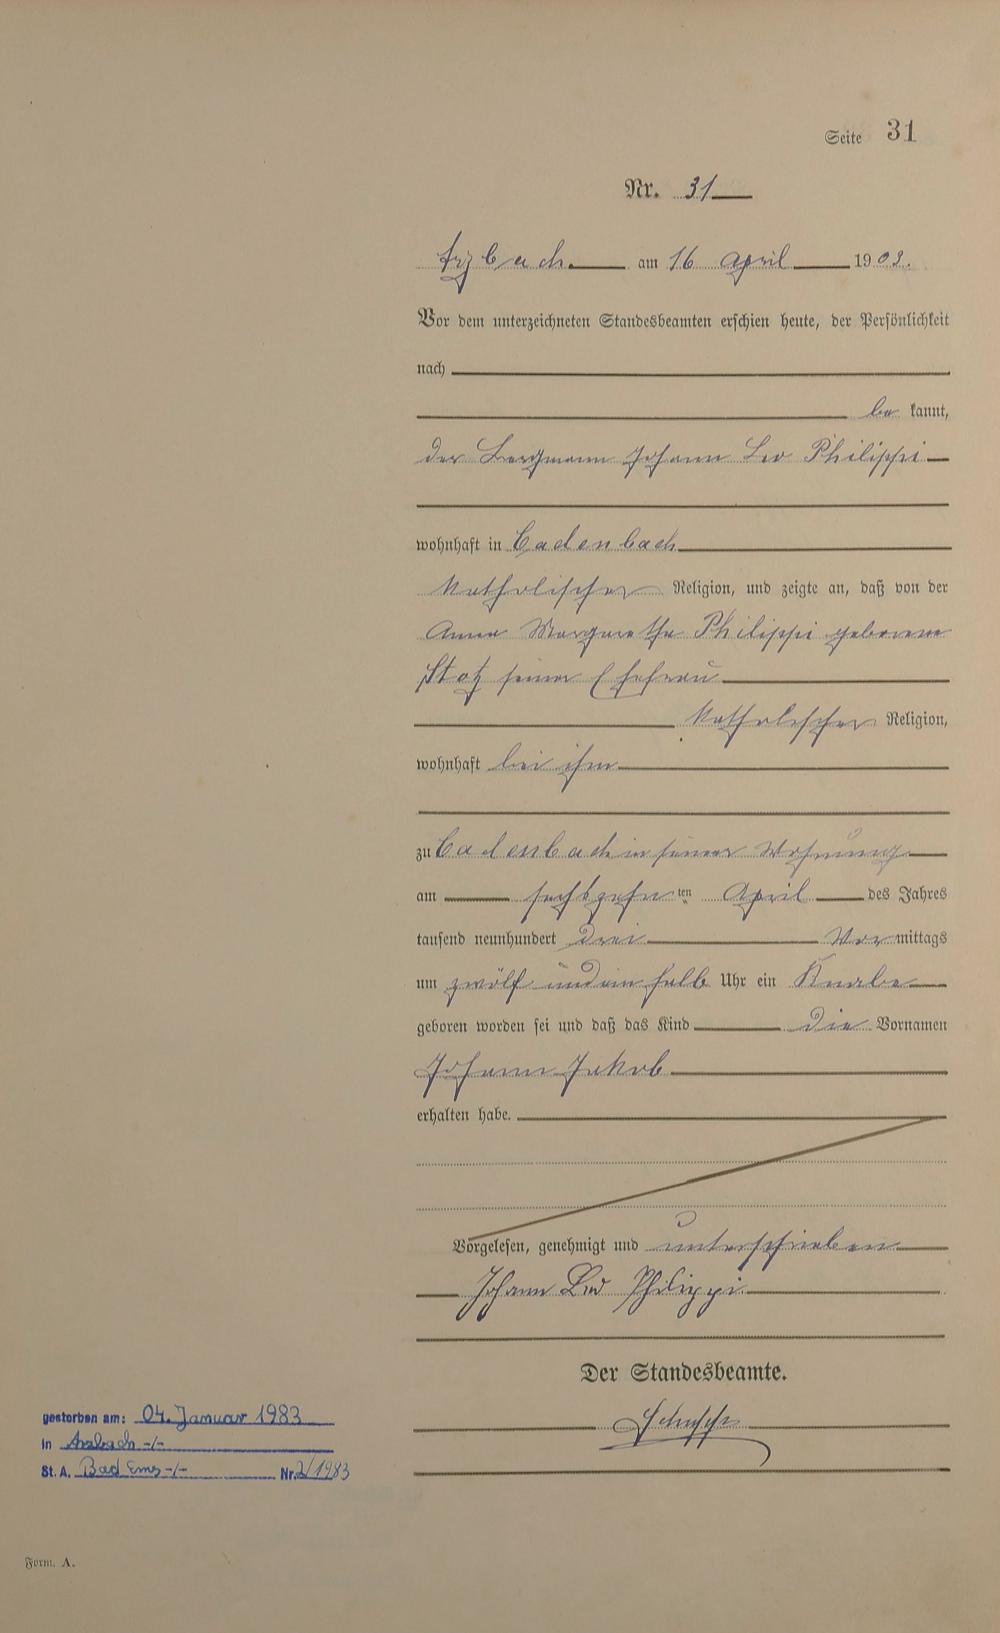 Seite 31
Nr. 31
Arzbach am 16 April 1903.
Vor dem unterzeichneten Standesbeamten erschien heute, der Persönlichkeit
nach
be kannt,
der Bergmann Johann Leo Philippi
wohnhaft in Cadenbach
katholischer Religion, und zeigte an, daß von der
Anna Margaretha Philippi geborene
Stotz seiner Ehefrau
katholischer Religion,
wohnhaft bei ihm
zu Cadenbach in seiner Wohnung
am sechszehnten April des Jahres
tausend neunhundert drei Vormittags
um zwölf und ein halb Uhr ein Knabe
geboren worden sei und daß das Kind die Vornamen
Johann Jakob
erhalten habe.
Vorgelesen, genehmigt und unterschrieben
Johann Leo Philippi
Der Standesbeamte.
gestorben am: 04. Januar 1983
in Arzbach -/-
St. A. Bad Ems -/- Nr. 2/1983
Form. A.